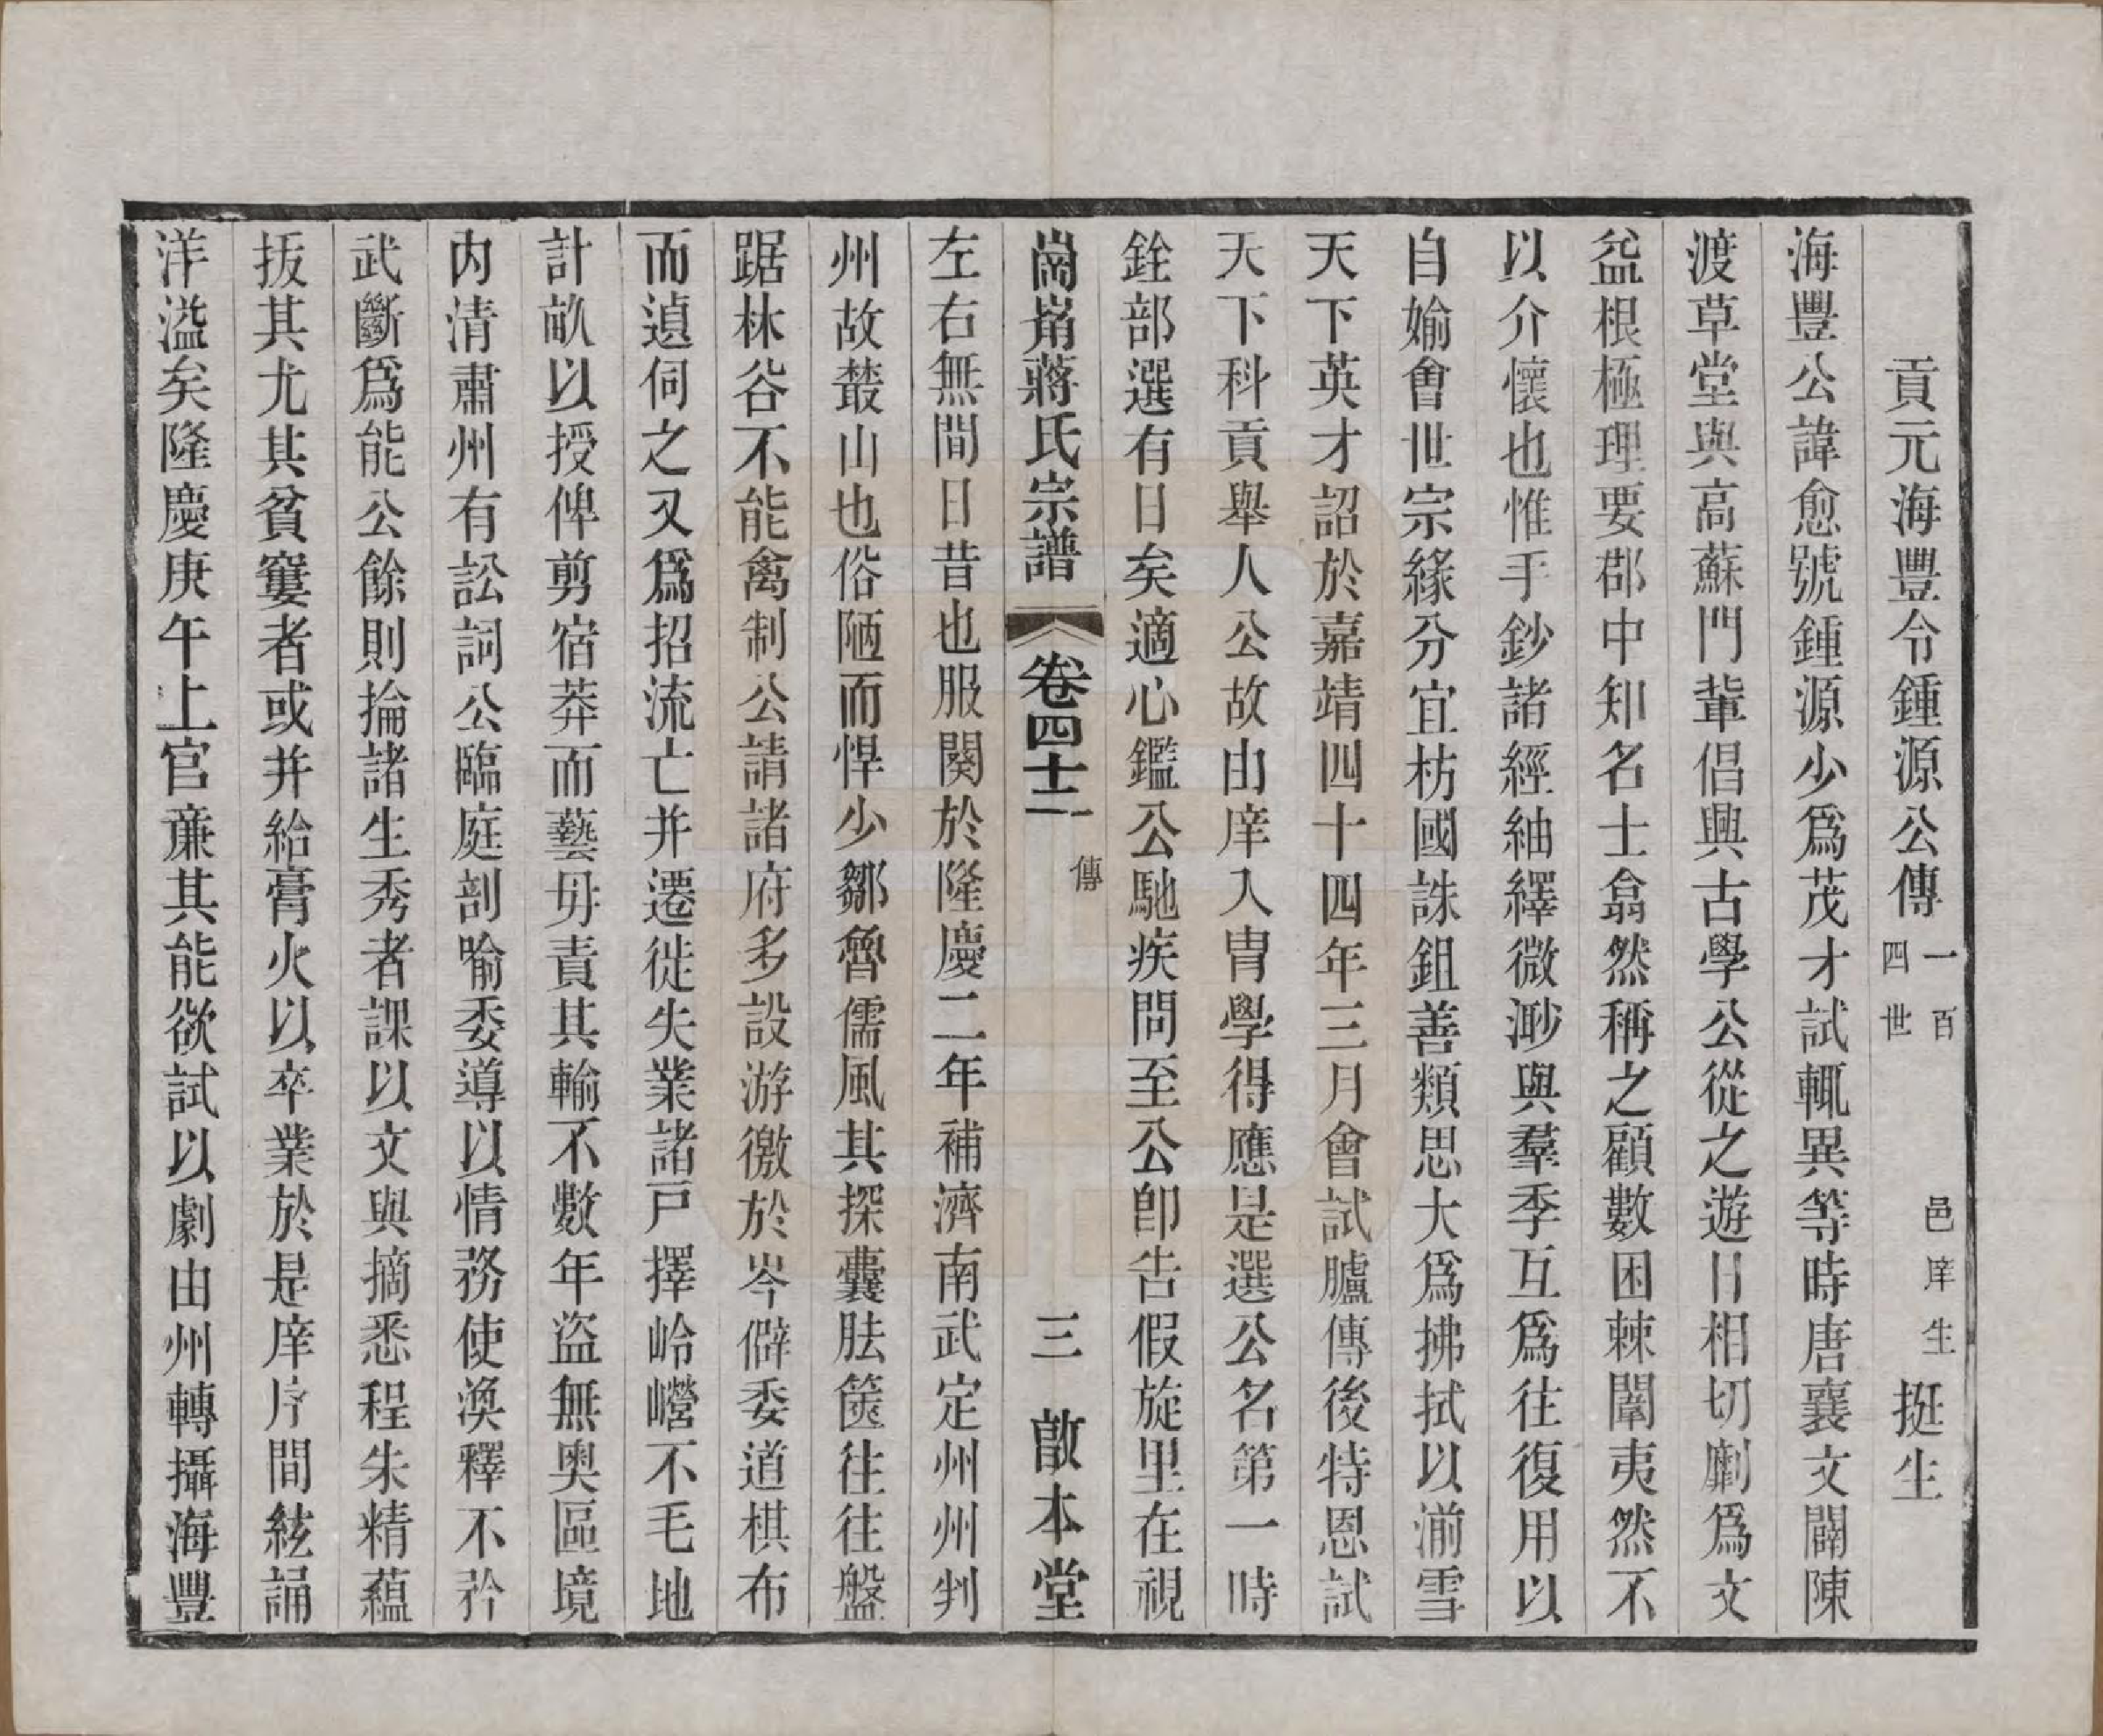 貢元海豐令鍾源公傳一百四世　邑庠生挺生
海豐公諱愈號鍾源少爲茂才試輒異等時唐襄文闢陳
渡草堂與高蘇門輩倡興古學公從之遊日相切劘爲文
益根極理要郡中知名士翕然稱之顧數困棘闈夷然不
以介懷也惟手鈔諸經紬繹微渺與羣季互爲往復用以
自媮會世宗緣分宜枋國誅鉏善類思大爲拂拭以湔雪
天下英才詔於嘉靖四十四年三月會試臚傳後特恩試
天下科貢舉人公故由庠入胄學得應是選公名第一時
銓部選有日矣適心鑑公馳疾問至公卽吿假旋里在視
崗㟁蔣氏宗譜　卷四十二　傳　三　啟本堂
左右無間日昔也服闋於隆慶二年補濟南武定州州判
州故叢山也俗陋而悍少鄒魯儒風其探囊胠篋往往盤
踞林谷不能禽制公請諸府多設游徼於岑僻委道棋布
而遉伺之又爲招流亡并遷徙失業諸戸擇岭巆不毛地
計畝以授俾剪宿莽而藝毋責其輸不數年盜無奧區境
内清肅州有訟詞公臨庭剖喻委導以情務使渙釋不矜
武斷爲能公餘則掄諸生秀者課以文與摘悉程朱精蘊
拔其尤其貧窶者或并給膏火以卒業於是庠序間絃誦
洋溢矣隆慶庚午上官亷其能欲試以劇由州轉攝海豐